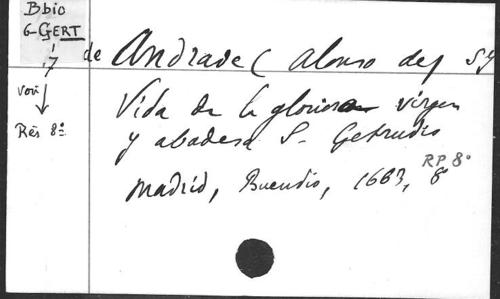 Bbio
6-GERT
7
de Andrade (Alonso de) SJ
voir
Rés 8º
Vida de la gloriosa virgen
y abadesa S. Getrudis
RP 8º
Madrid, Buendio, 1663, 8º